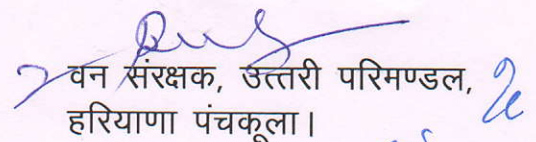 वन संरक्षक, उत्तरी परिमण्डल,
हरियाणा पंचकूला।